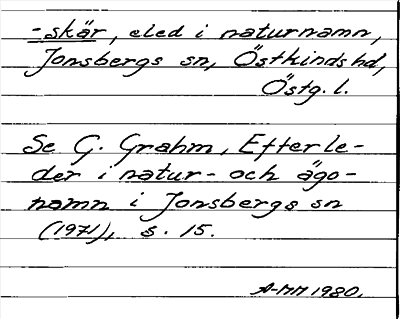 -skär, eled i naturnamn,
Jonsbergs sn, Östkinds hd,
Östg. l.
Se G. Grahm, Efterle-
der i natur- och ägo-
namn i Jonsbergs sn
(1971), s. 15.
A-MM 1980.